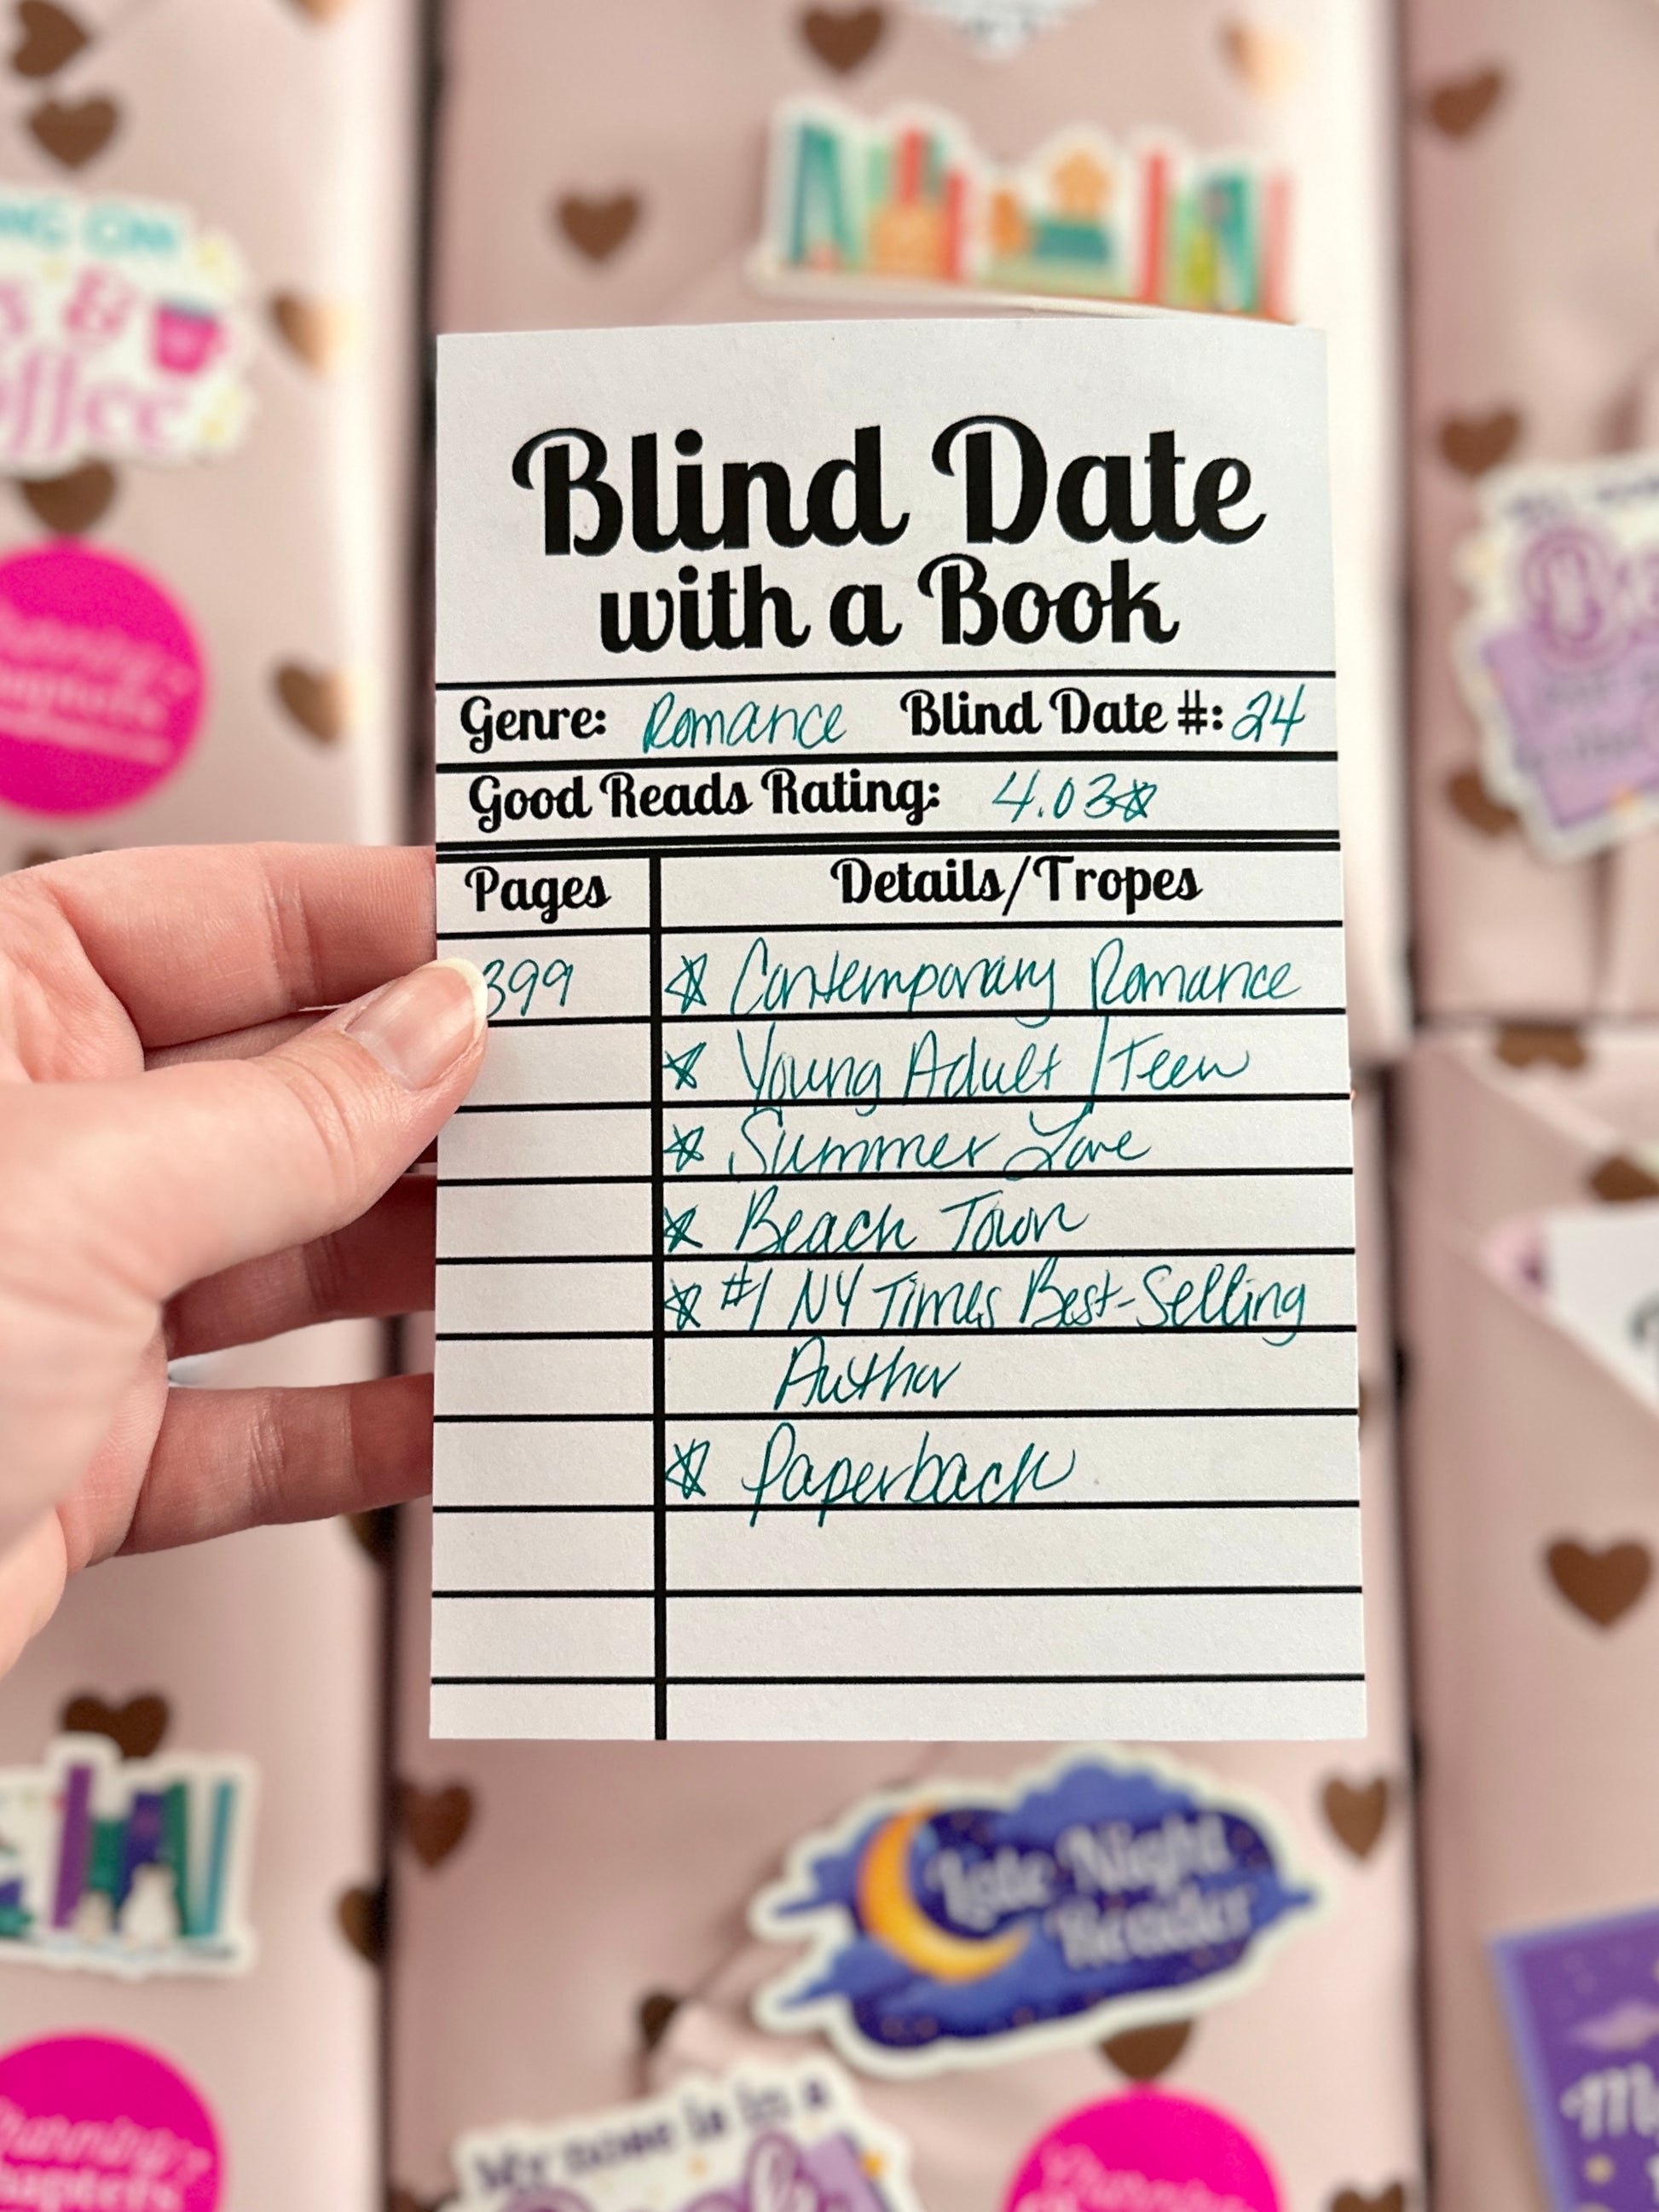 Blind Date
with a Book
Genre: Romance Blind Date #: 24
Good Reads Rating: 4.03☆
Pages Details/Tropes
399 ☆ Contemporary Romance
☆ Young Adult / Teen
☆ Summer Love
☆ Beach Town
☆ #1 NY Times Best-Selling
Author
☆ Paperback
Late Night
Reader
My nose is in a